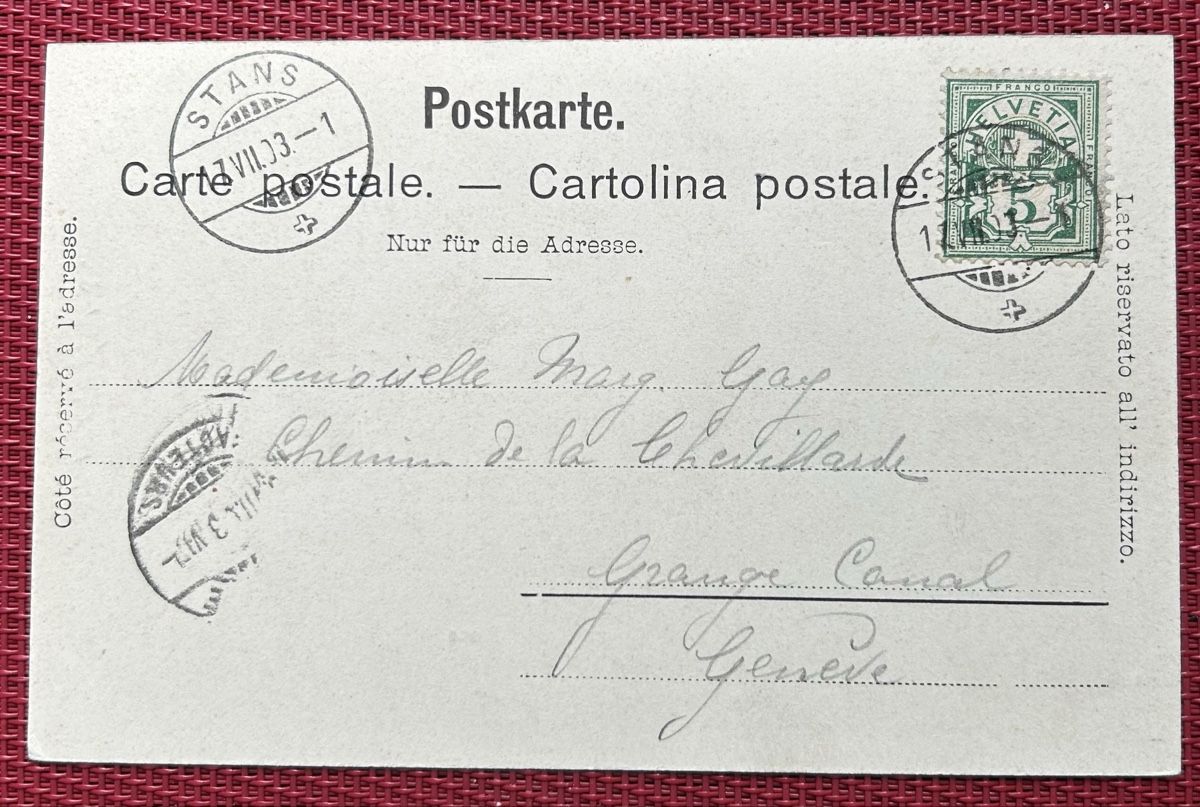 STANS
17.VII.03.–1
Postkarte.
Carte postale. — Cartolina postale.
Nur für die Adresse.
FRANCO
HELVETIA
5
STANS
17.VII.03.–1
Côté réservé à l'adresse.
Lato riservato all' indirizzo.
Mademoiselle Marg. Gay
Chemin de la Chevillarde
Grange Canal
Genève